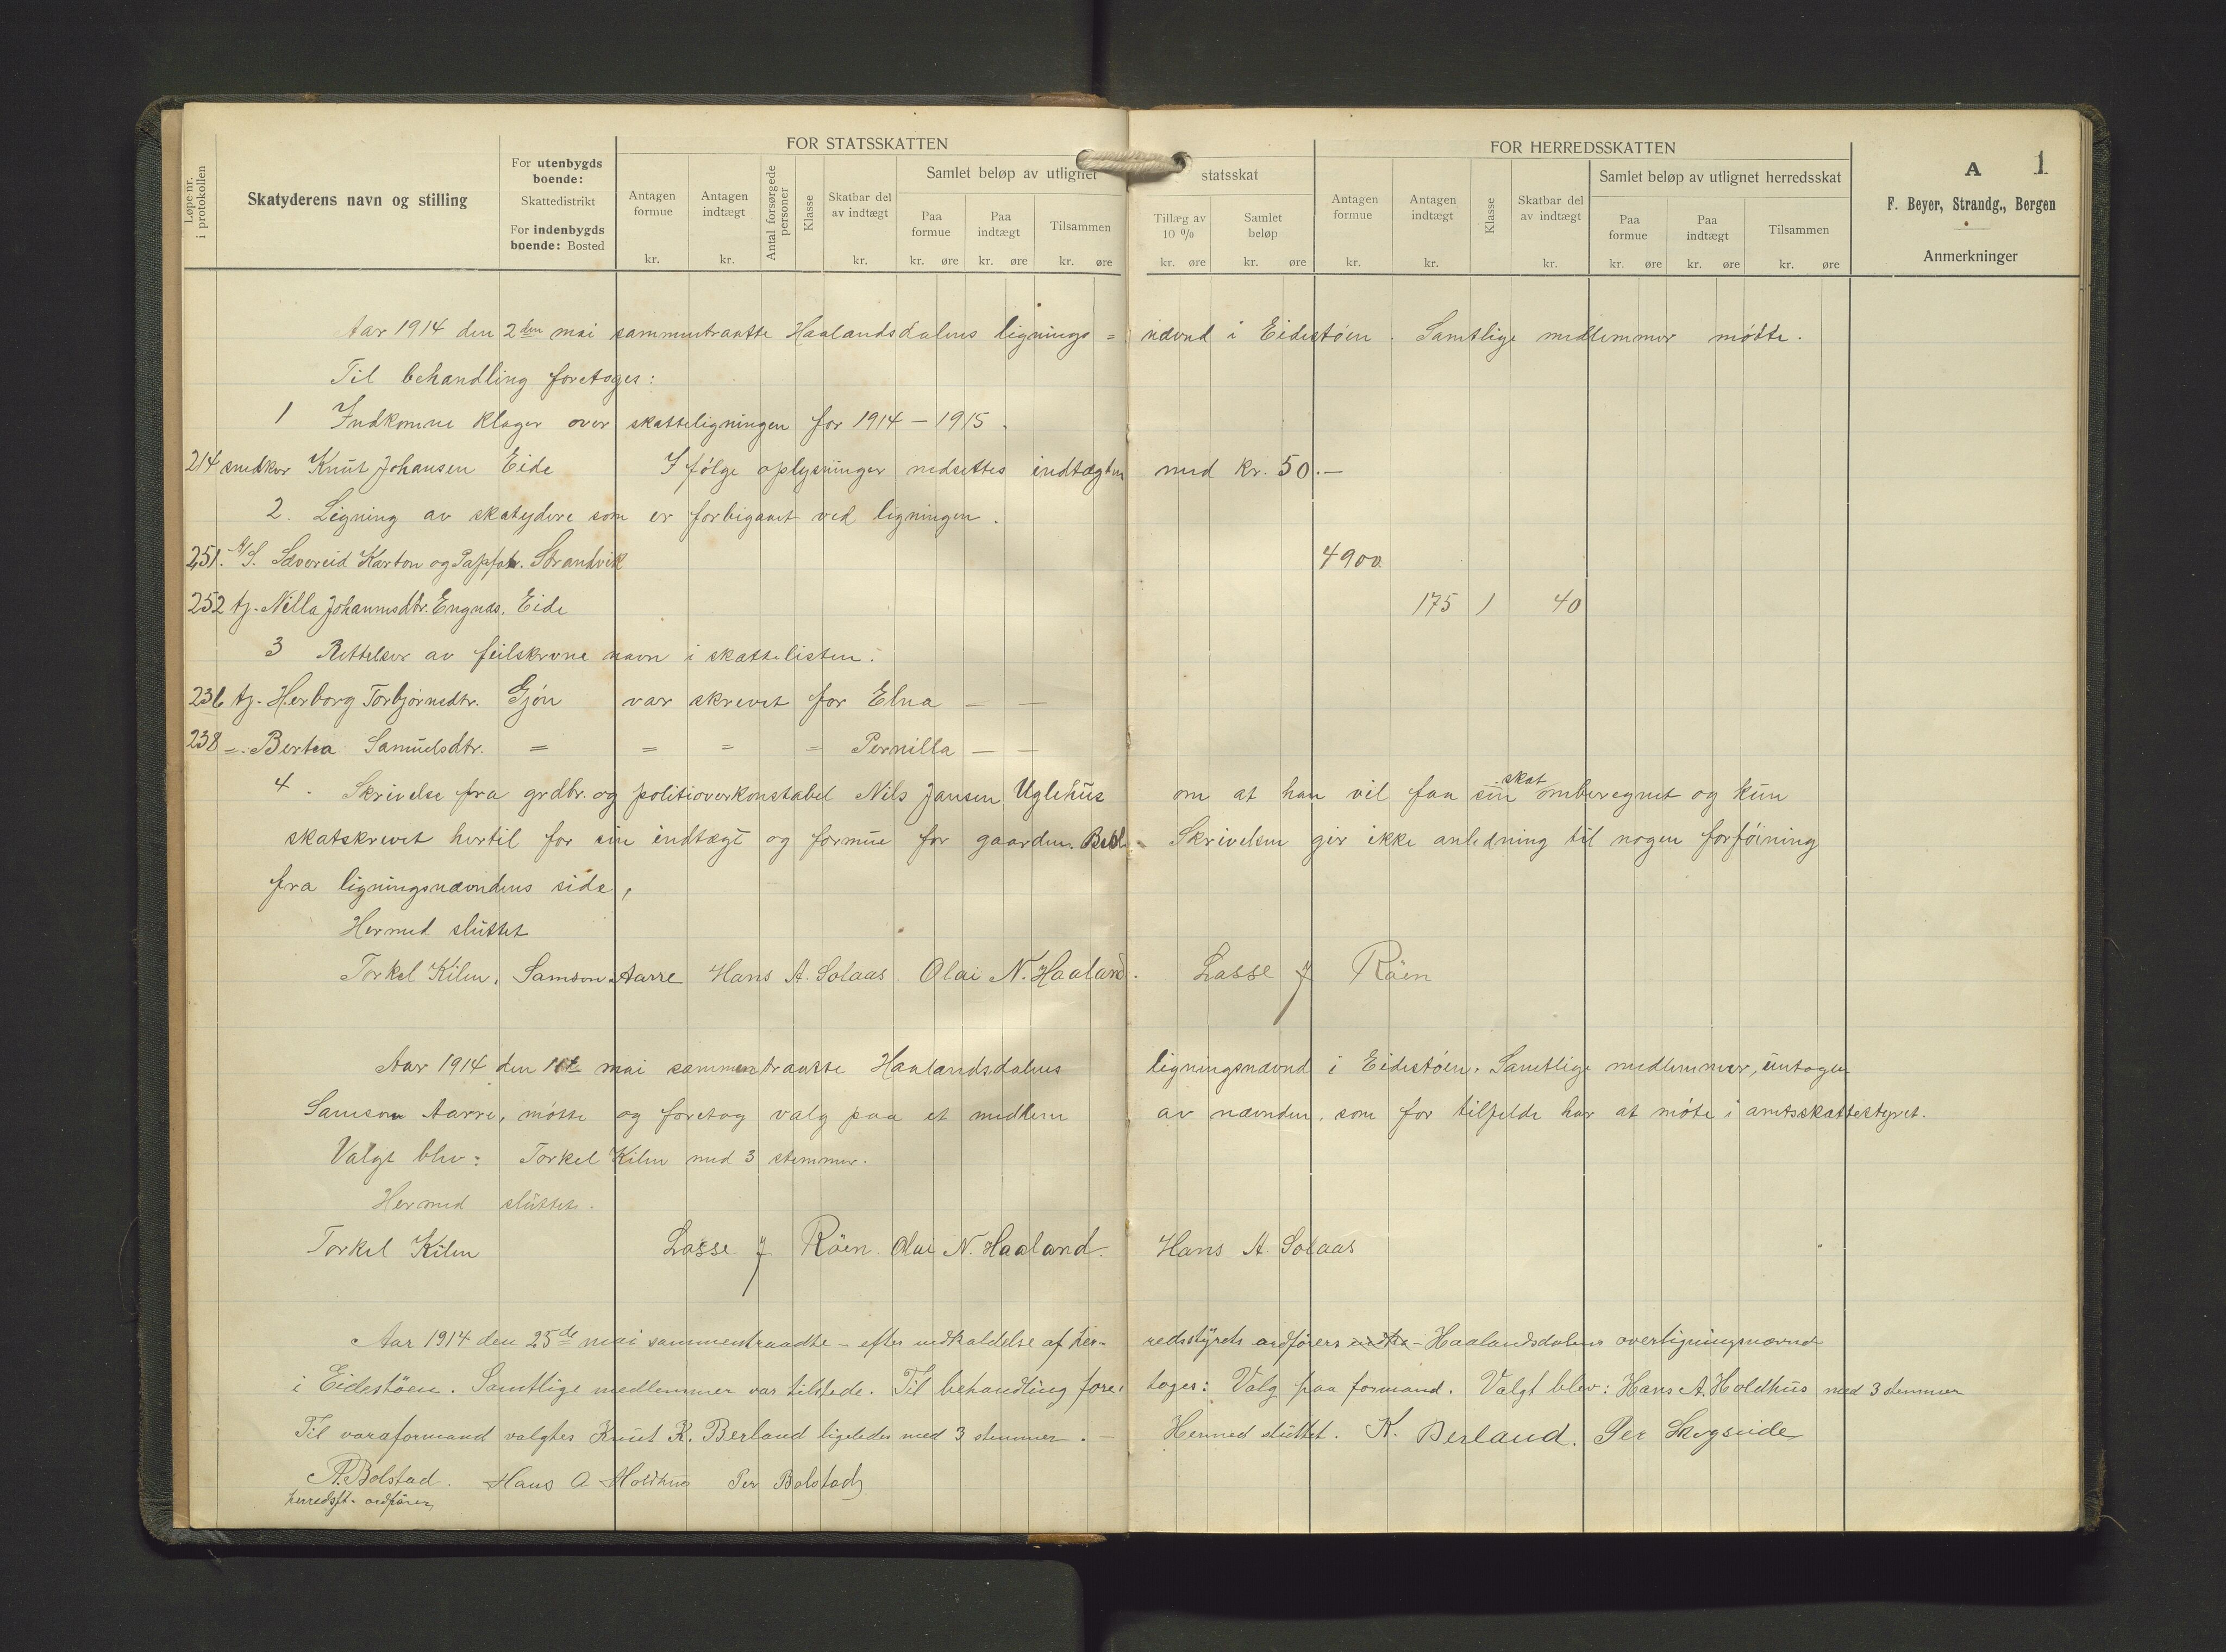 FOR STATSSKATTEN
FOR HERREDSSKATTEN
A 1
F. Beyer, Strandg., Bergen
Anmerkninger
Løpe nr. i protokollen
Skatyderens navn og stilling
For utenbygds boende:
Skattedistrikt
For indenbygds boende: Bosted
Antagen formue kr.
Antagen indtægt kr.
Antal forsørgede personer
Klasse
Skatbar del av indtægt kr.
Samlet beløp av utlignet statsskat
Paa formue kr. øre
Paa indtægt kr. øre
Tilsammen kr. øre
Tillæg av 10 % kr. øre
Samlet beløp kr. øre
Antagen formue kr.
Antagen indtægt kr.
Klasse
Skatbar del av indtægt kr.
Samlet beløp av utlignet herredsskat
Paa formue kr. øre
Paa indtægt kr. øre
Tilsammen kr. øre
Aar 1914 den 2den mai sammentraatte Haalandsdalens lignings = nævnd i Eidestöen. Samtlige medlemmer mötte.
Til behandling foretoges:
1 Indkomne klager over skatteligningen for 1914 – 1915.
214 snedker Knut Johansen Eide I følge oplysninger nedsettes indtægten med kr. 50.–
2. Ligning av skatydere som er forbigaaet ved ligningen.
251. A/S. Sævereid Karton og Papfabr. Strandvik 4900
252 tj. Nilla Johannesdtr. Engnæs, Eide 175 1 40
3 Rettelser av feilskrevne navn i skattelisten:
236 tj. Herborg Torbjørnsdtr. Gjön var skrevet for Elna — —
238 =. Bertea Samuelsdtr. = = = = Pernilla — —
4. Skrivelse fra grdbr. og politioverkonstabel Nils Jansen Uglehus om at han vil faa sin skat omberegnet og kun
skatskrevet hertil for sin indtægt og formue for gaarden. Skrivelsen gir ikke anledning til nogen forföining
fra ligningsnævndens side,
Hermed sluttet
Torkel Kilen. Samson Aarre Hans A. Solaas. Olai N. Haaland. Lasse J Röen
Aar 1914 den mai sammentraatte Haalandsdalens ligningsnævnd i Eidestöen. Samtlige medlemmer, untagen
Samson Aarre, mötte og foretog valg paa et medlem av nævnden, som for tilfelde har at möte i amtsskattestyret.
Valgt blev: Torkel Kilen med 3 stemmer.
Hermed sluttet.
Torkel Kilen Lasse J Röen. Olai N. Haaland. Hans A. Solaas
Aar 1914 den 25de mai sammentraadte – efter indkaldelse af herredsstyrets ordförers – Haalandsdalens overligningsnævnd
i Eidestöen. Samtlige medlemmer var tilstede. Til behandling foretoges: Valg paa formand. Valgt blev: Hans A. Holdhus med 3 stemmer
Til varaformand valgtes Knut K. Berland ligeledes med 3 stemmer. – Hermed sluttet. K. Berland. Per Skogseide
A. Bolstad. Hans A Holdhus Per Bolstad
herredsst. ordförer